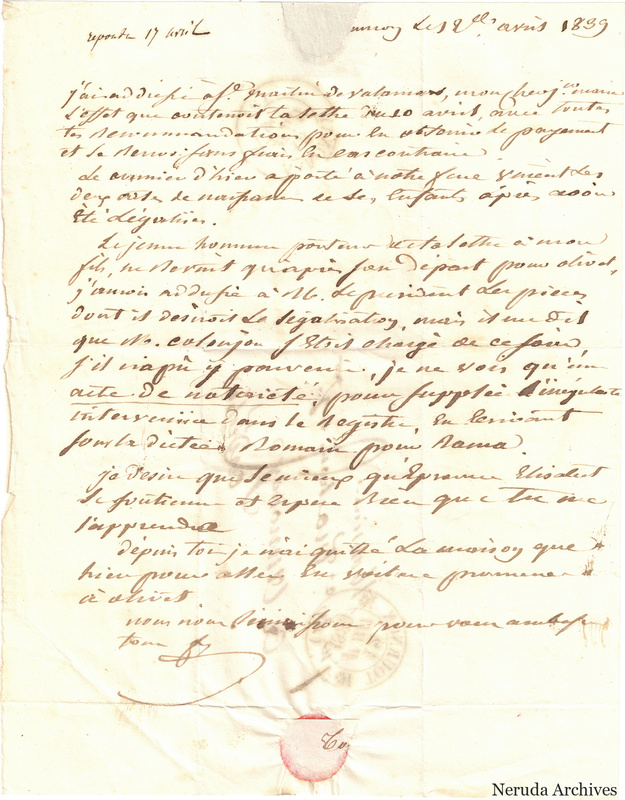 reponse 17 avril
Le 12 avril 1839
j'ai addressé a f.^d martin de valamas, mon cher
L'effet que contenoit ta lettre du 10 avril, avec toutes
les Recommandations pour en obtenir le payement
et le Renvoi sans frais en cas contraire.
Le courrier d'hier a porté à notre
de naissance de ses Enfants après avoir
été Légalisés.
Le jeune homme porteur de ta lettre à mon
fils, ne Revint qu'après son départ pour olivet,
j'aurois addressé à M. Le president Les pieces
dont il désiroit La Legalisation, mais il me dit
que M. colonjon s'étoit chargé de ce soin
s'il n'a pû y pourvoir, je ne vois qu'un
acte de notoriété, pour suppléer
intervenue dans le Registre, En Ecrivant
sous la dictée Romain pour Rama.
je desire que le mieux qu'Eprouve Elisabet
se soutienne et Espere bien que tu me
l'apprendra
depuis toi je n'ai quitté La maison que
hier pour aller En voiture promener
à olivet
nous nous Réunissons pour vous embrasser
tous
Neruda Archives